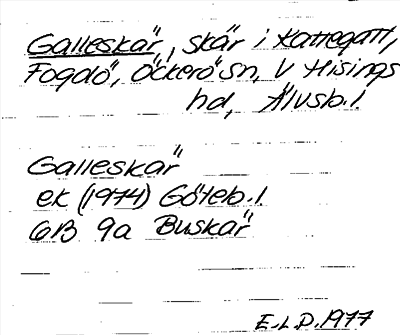 Galleskär, skär i Kattegatt,
Fogdö, Öckerö sn, V Hisings
hd, Älvsb.l.
Galleskär
ek (1974) Göteb.l.
6B 9a Buskär
E.L.P.1977